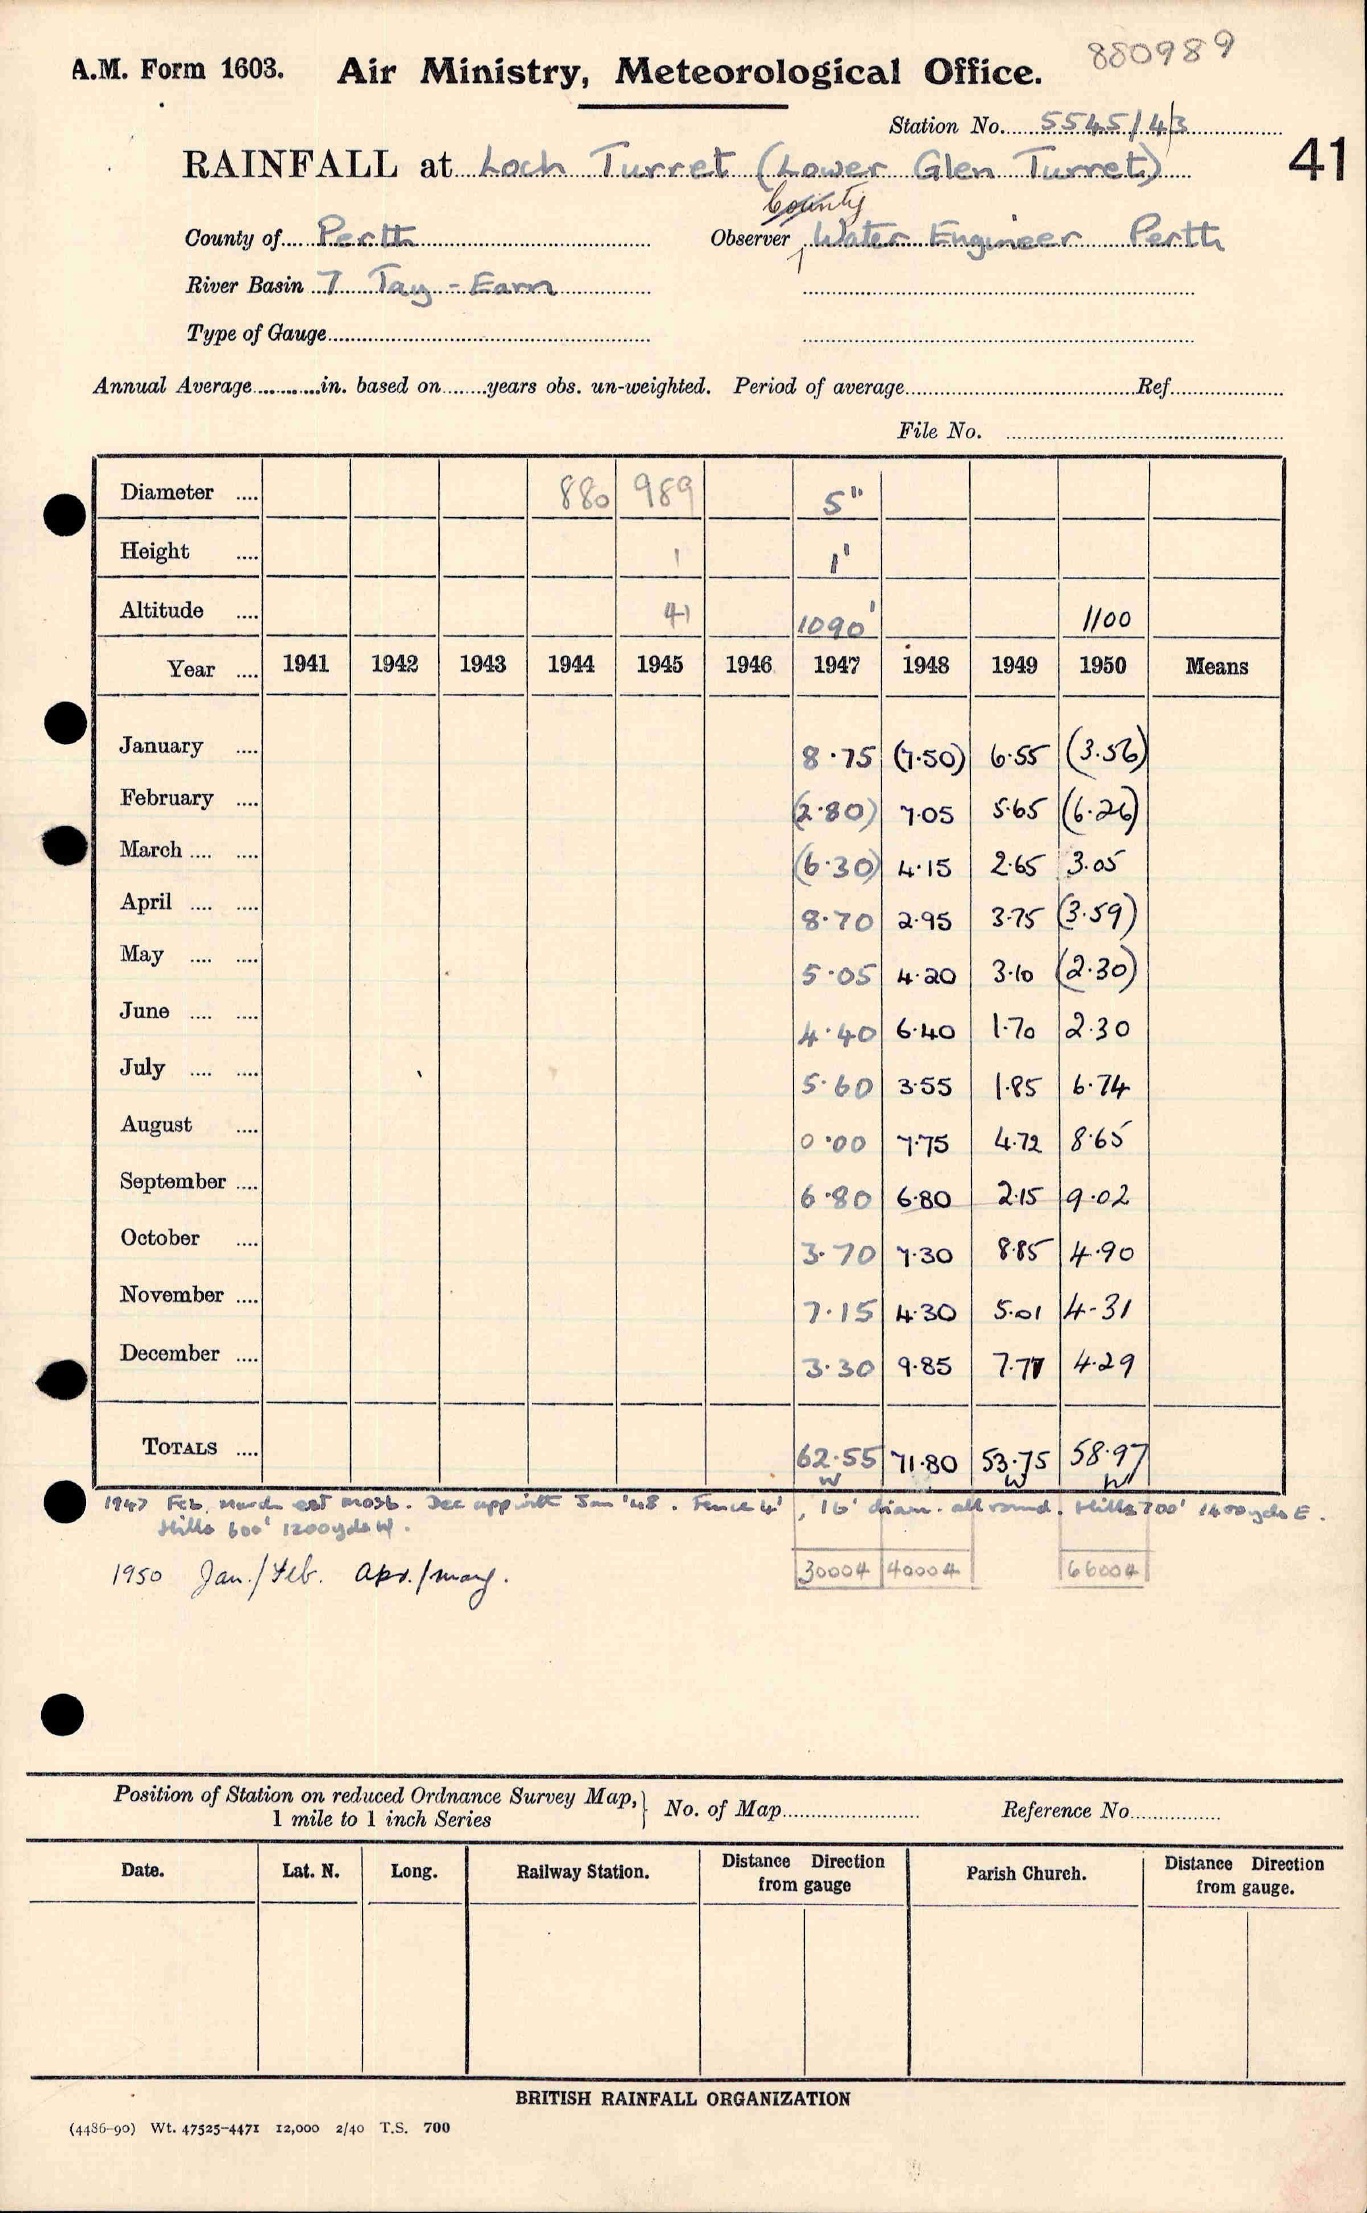 880989
A.M. Form 1603. Air Ministry, Meteorological Office.
Station No. 5545/43
RAINFALL at Loch Turret (Lower Glen Turret) 41
County
County of Perth Observer Water Engineer Perth
River Basin 7 Tay - Earn
Type of Gauge
Annual Average in. based on years obs. un-weighted. Period of average Ref.
File No.
Diameter .... 880 989 5"
Height .... 1 1'
Altitude .... 41 1090' 1100
Year .... 1941 1942 1943 1944 1945 1946 1947 1948 1949 1950 Means
January .... 8.75 (7.50) 6.55 (3.56)
February .... (2.80) 7.05 5.65 (6.26)
March .... .... (6.30) 4.15 2.65 3.05
April .... .... 8.70 2.95 3.75 (3.59)
May .... .... 5.05 4.20 3.10 (2.30)
June .... .... 4.40 6.40 1.70 2.30
July .... .... 5.60 3.55 1.85 6.74
August .... 0.00 7.75 4.72 8.65
September .... 6.80 6.80 2.15 9.02
October .... 3.70 7.30 8.85 4.90
November .... 7.15 4.30 5.01 4-31
December .... 3.30 9.85 7.77 4.29
TOTALS .... 62.55 71.80 53.75 58.97
W W W
1947 Feb. March est MO3b. Dec app with Jan '48. Fence 4', 16' diam. all round. Hills 700' 1400yds E.
Hills 600' 1200yds W.
1950 Jan./Feb. Apr./May. 30004 40004 66004
Position of Station on reduced Ordnance Survey Map, 1 mile to 1 inch Series No. of Map Reference No.
Date. Lat. N. Long. Railway Station. Distance Direction from gauge Parish Church. Distance Direction from gauge.
BRITISH RAINFALL ORGANIZATION
(4486-90) Wt. 47525-4471 12,000 2/40 T.S. 700